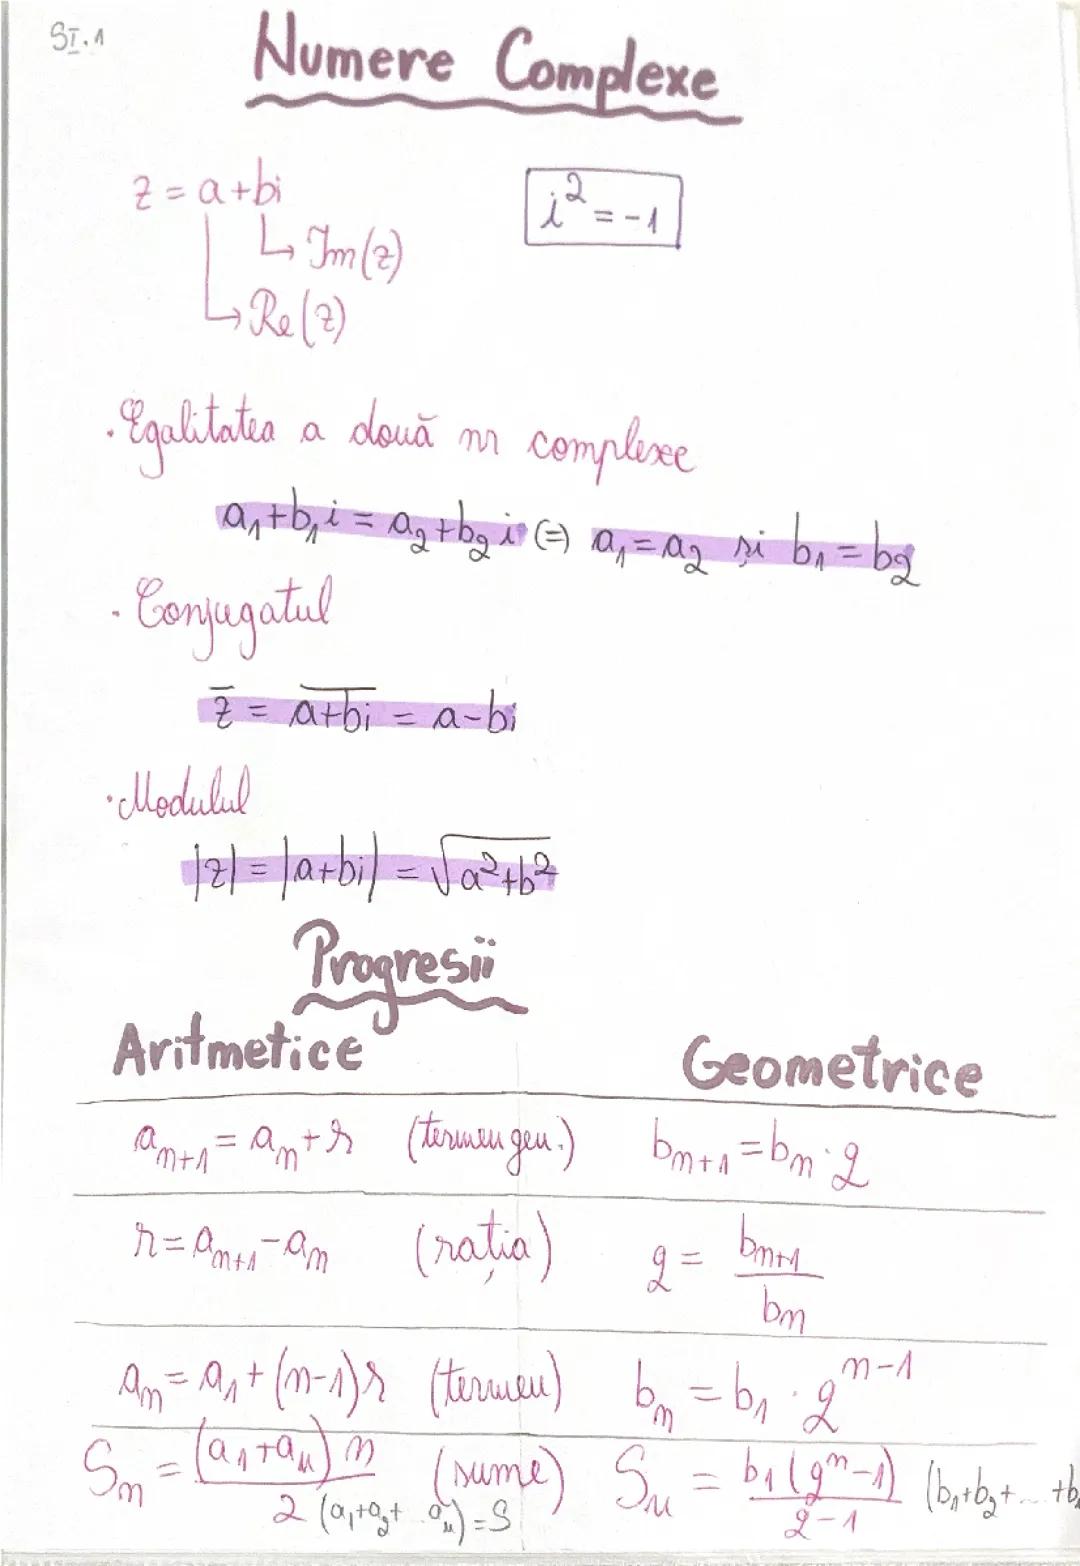 SI.1
Numere Complexe
z = a+bi
i² = -1
Im(z)
Re(z)
· Egalitatea a două nr complexe
a₁+b₁i = a₂+b₂i (=) a₁=a₂ și b₁=b₂
· Conjugatul
z̅ = a̅+̅b̅i̅ = a-bi
· Modulul
|z| = |a+bi| = √(a²+b²)
Progresii
Aritmetice Geometrice
aₙ₊₁ = aₙ+r (termen gen.) bₙ₊₁ = bₙ·q
r = aₙ₊₁-aₙ (rația) q = bₙ₊₁/bₙ
aₙ = a₁+(n-1)r (termen) bₙ = b₁·qⁿ⁻¹
Sₙ = (a₁+aₙ)n/2 (sume) Sₙ = b₁(qⁿ-1)/q-1 (b₁+b₂+...+b
(a₁+a₂+..aₙ)=S